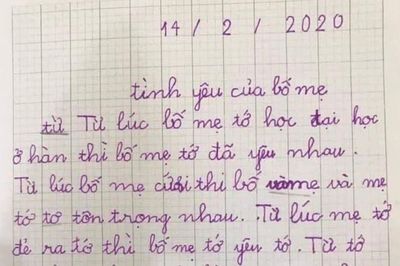 14 / 2 / 2020
tình yêu của bố mẹ
từ Từ lúc bố mẹ tớ học đại học
ở hàn thì bố mẹ tớ đã yêu nhau.
Từ lúc bố mẹ cưới thì bố và mẹ
tớ tơ tôn trọng nhau. Từ lúc mẹ tớ
đẻ ra tớ thì bố mẹ tớ yêu tớ. Từ tớ